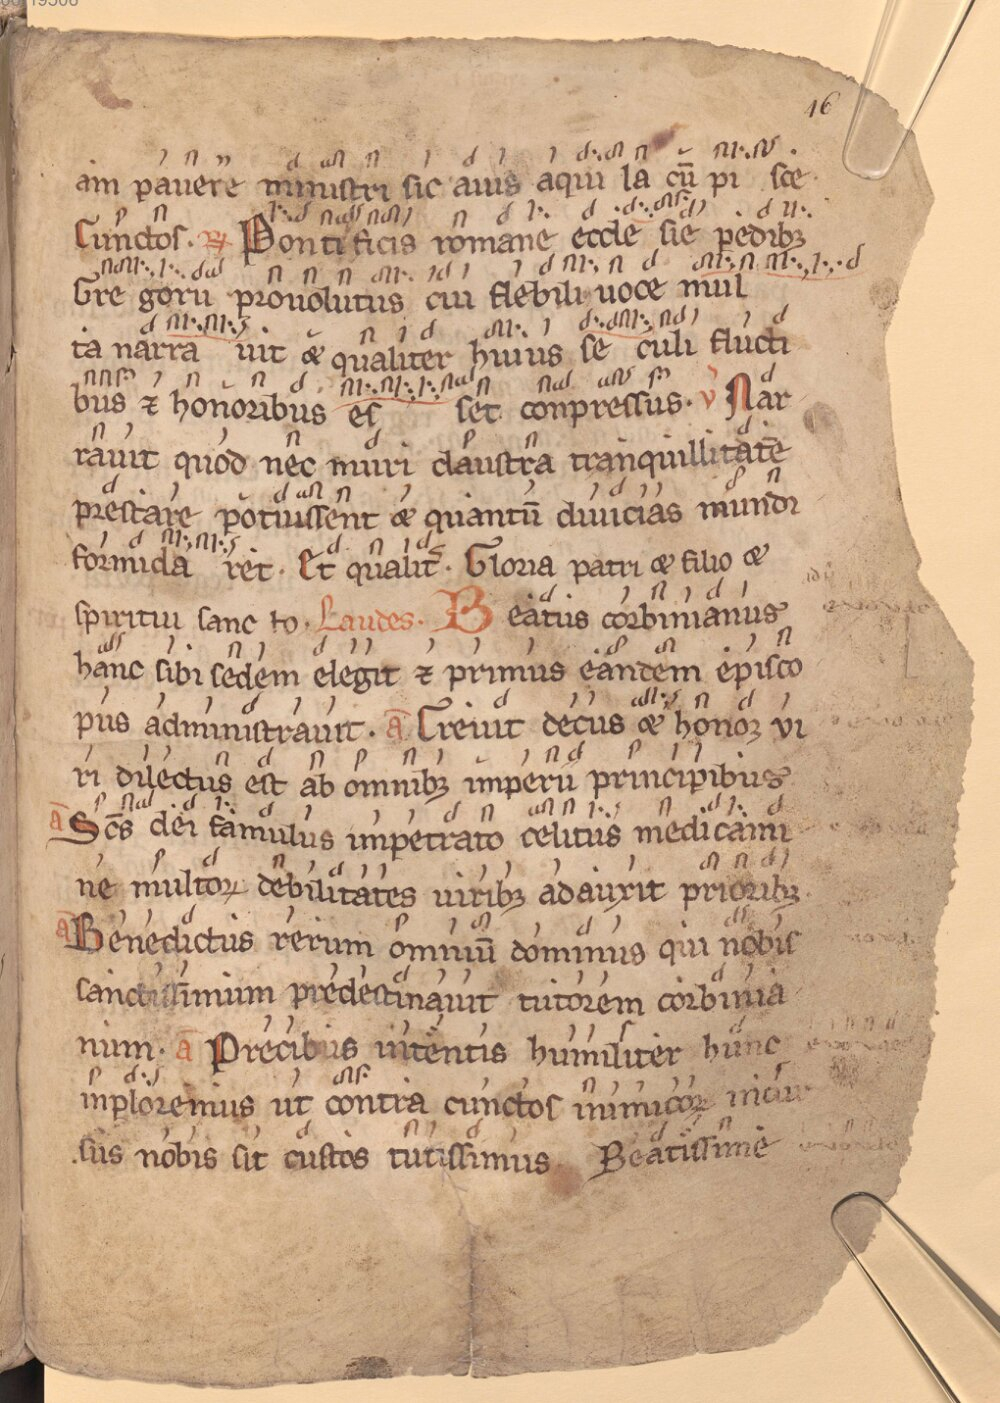 16
am pavere ministri sic avis aqui la cū pi sce
Cunctos. R Pontificis romane eccle sie pedibꝫ
Gre gorii provolutus cui flebili voce mul
ta narra vit & qualiter huius se culi flucti
bus ⁊ honoribus es set conpressus. v Nar
ravit quod nec muri claustra tranquillitatē
prestare potuissent & quantū divicias mundi
formida ret. Et qualit̄. Gloria patri & filio &
spiritui sanc to. Laudes. Beatus corbinianus
hanc sibi sedem elegit ⁊ primus eandem episco
pus administravit. ā Creuit decus & honoꝝ vi
ri dilectus est ab omnibꝫ imperii principibus
ā Sc̄s dei famulus impetrato celitus medicami
ne multoꝝ debilitates viribꝫ adauxit prioribꝫ
ā Benedictus rerum omniū dominus qui nobis
sanctissimum predestinavit tutorem corbinia
num. ā Precibus intentis humiliter hunc
inploremus ut contra cunctos inimicoꝝ incur
sus nobis sit custos tutissimus Beatissime